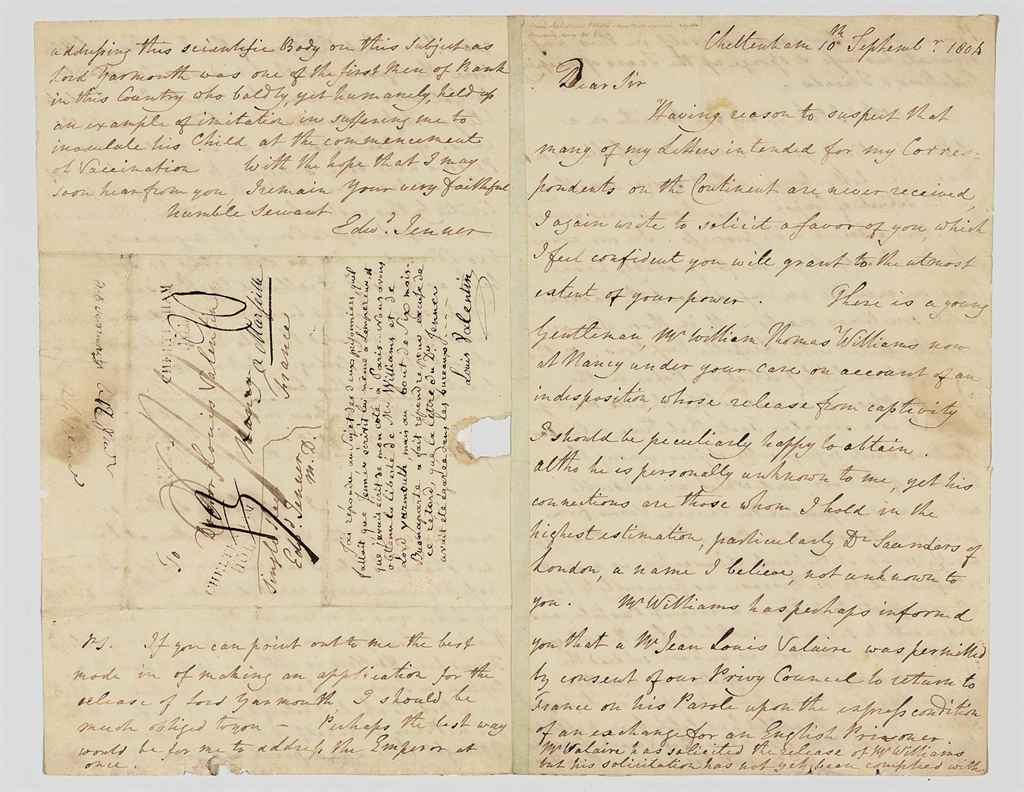 Cheltenham 10th Septembr. 1804
Dear Sir
Having reason to suspect that
many of my Letters intended for my Corres-
pondents on the Continent are never received,
I again write to solicit a favor of you, which
I feel confident you will grant to the utmost
extent of your power. There is a young
Gentleman, Mr William Thomas Williams now
at Nancy under your care on account of an
indisposition, whose release from captivity
I should be peculiarly happy to obtain.
altho he is personally unknown to me, yet his
connections are those whom I hold in the
highest estimation, particularly Dr Saunders of
London, a name I believe, not unknown to
you. Mr Williams has perhaps informed
you that a Mr Jean Louis Valaire was permitted
by consent of our Privy Council to return to
France on his Parole upon the express condition
of an exchange for an English Prisoner.
Mr Valaire has solicited the release of Mr Williams
but his solicitation has not yet been complied with
addressing this scientific Body on this subject as
Lord Yarmouth was one of the first Men of Rank
in this Country who boldly, yet humanely, held up
an example of imitation in suffering me to
inoculate his Child at the commencement
of Vaccination With the hope that I may
soon hear from you I remain Your very faithful
humble Servant
Edwd. Jenner
To
Doctor Louis Valentin
Nancy
a Marseille
France
Single
Edwd. Jenner
M.D.
J'ai répondu, au sujet des deux prisonniers, qu'il
fallait que Jenner écrivit lui même à l'empereur et
que j'avais écrit de mon côté à Paris. nous avons
obtenu la liberté de Mr. Williams et de
Lord yarmouth, mais au bout de six mois.
Buonaparte a fait répondre, pour excuse de
ce retard, que la lettre du Dr. Jenner
avait été égarée dans les bureaux.
Louis Valentin
PS. If you can point out to me the best
mode in of making an application for the
release of Lord Yarmouth, I should be
much obliged to you - Perhaps the best way
would be for me to address the Emperor at
once.